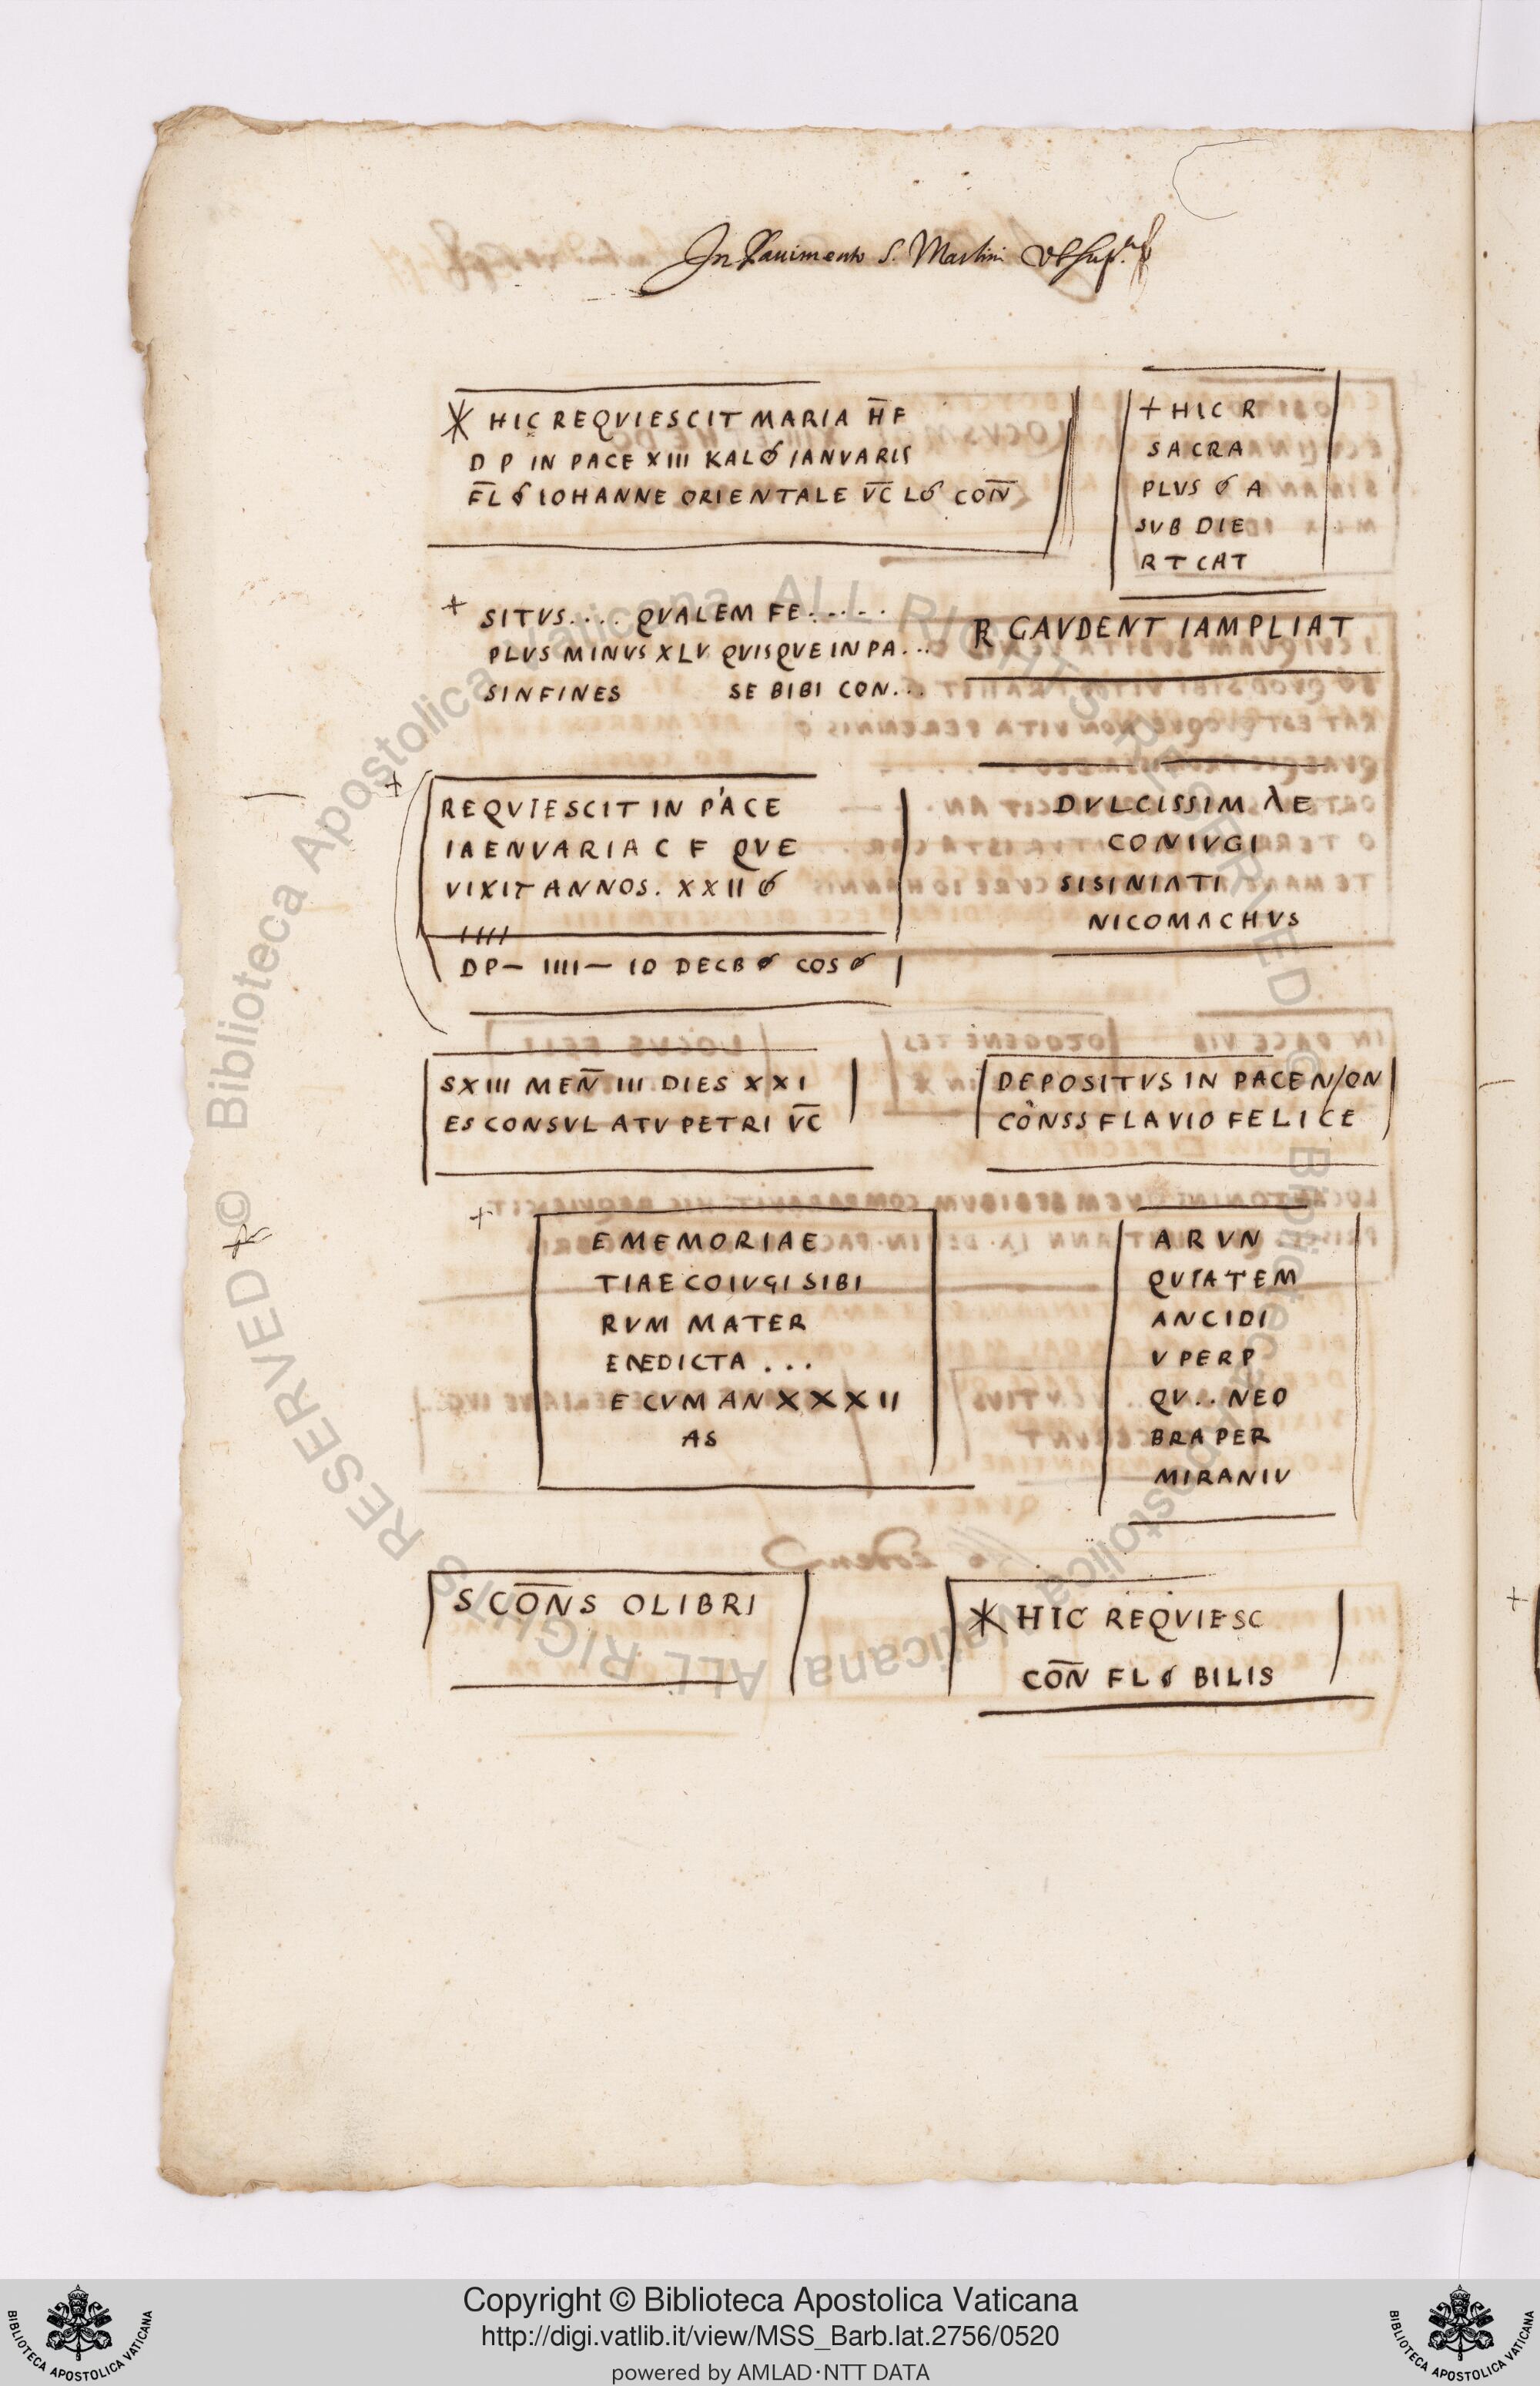 In Pauimento S. Martini
HIC REQVIESCIT MARIA H̅F
D P IN PACE XIII KALO IANVARIS
F̅L O IOHANNE ORIENTALE V̅C̅ LO CO̅N̅
+ HIC R
SACRA
PLVS O A
SVB DIE
RTCAT
+ SITVS.... QVALEM FE.....
PLVS MINVS XLV QVISQVE IN PA...
SINFINES SE BIBI CON...
R GAVDENT IAMPLIAT
+
REQVIESCIT IN PACE
IAENVARIA C F QVE
VIXIT ANNOS. XXII O
IIII
DP— IIII— ID DECB O COS O
DVLCISSIMAE
CONIVGI
SISINIATI
NICOMACHVS
SXIII MEN̅ III DIES XXI
ES CONSVLATV PETRI V̅C̅
DEPOSITVS IN PACE N/ON
CONSS FLAVIO FELICE
+
E MEMORIAE
TIAE COIVGI SIBI
RVM MATER
ENEDICTA ...
E CVM AN XXXII
AS
ARVN
QVIATEM
ANCIDI
VPERP
QV..NEO
BRAPER
MIRANIV
S CO̅N̅S OLIBRI
HIC REQVIESC
CO̅N̅ FL O BILIS
Copyright © Biblioteca Apostolica Vaticana
http://digi.vatlib.it/view/MSS_Barb.lat.2756/0520
powered by AMLAD·NTT DATA
BIBLIOTECA APOSTOLICA VATICANA
BIBLIOTECA APOSTOLICA VATICANA
© Biblioteca Apostolica Vaticana ALL RIGHTS RESERVED © Biblioteca Apostolica Vaticana ALL RIGHTS RESERVED